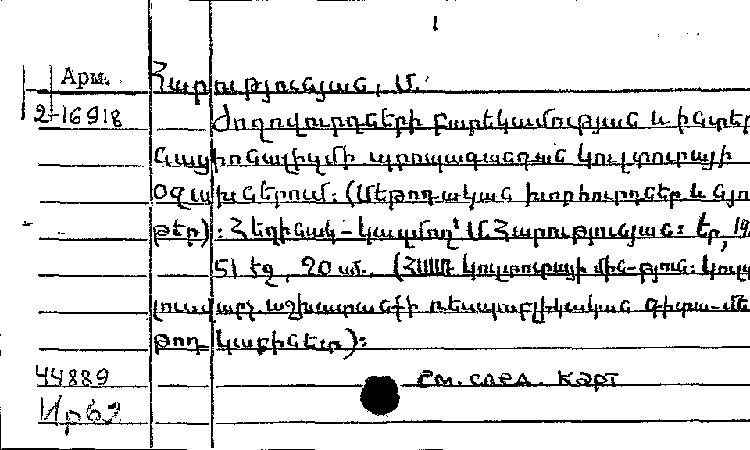 1
Арм. Հարությունյան, Մ.
2-16918 Ժողովուրդների բարեկամության և ինտեր
նացիոնալիզմի պրոպագանդան կուլտուրայի
օջախներում: (Մեթոդական խորհուրդներ և նյու
թեր): Հեղինակ-կազմող՝ Մ. Հարությունյան: Եր., 19
51 էջ, 20 սմ. (ՀՍՍՀ կուլտուրայի մին-թյուն: Կուլտ
լուսավոր. աշխատանքի ռեսպուբլիկական գիտա-մե
թոդ. կաբինետ):
44889 См. след. карт